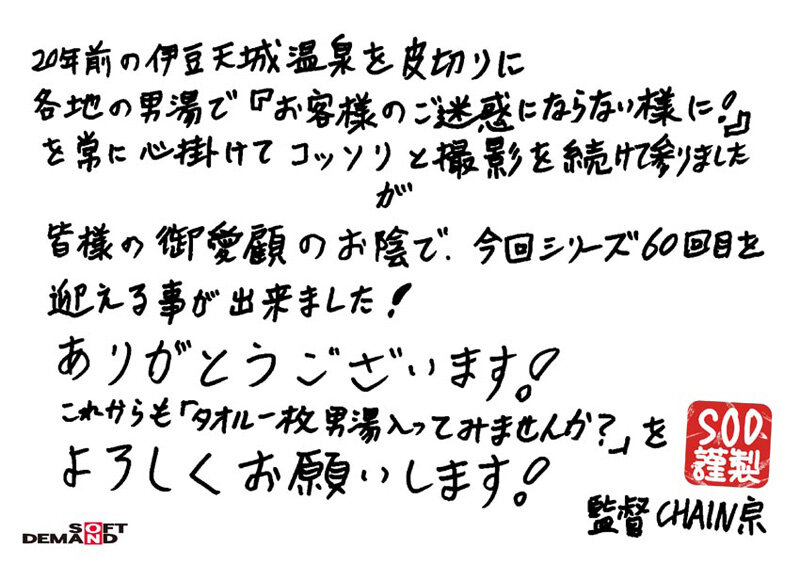 20年前の伊豆天城温泉を皮切りに
各地の男湯で『お客様のご迷惑にならない様に!』
を常に心掛けてコッソリと撮影を続けて参りました
が
皆様の御愛顧のお陰で、今回シリーズ60回目を
迎える事が出来ました!
ありがとうございます!
これからも「タオル一枚男湯入ってみませんか?」を
よろしくお願いします!
SOD
謹製
監督 CHAIN宗
SOFT
ON
DEMAND